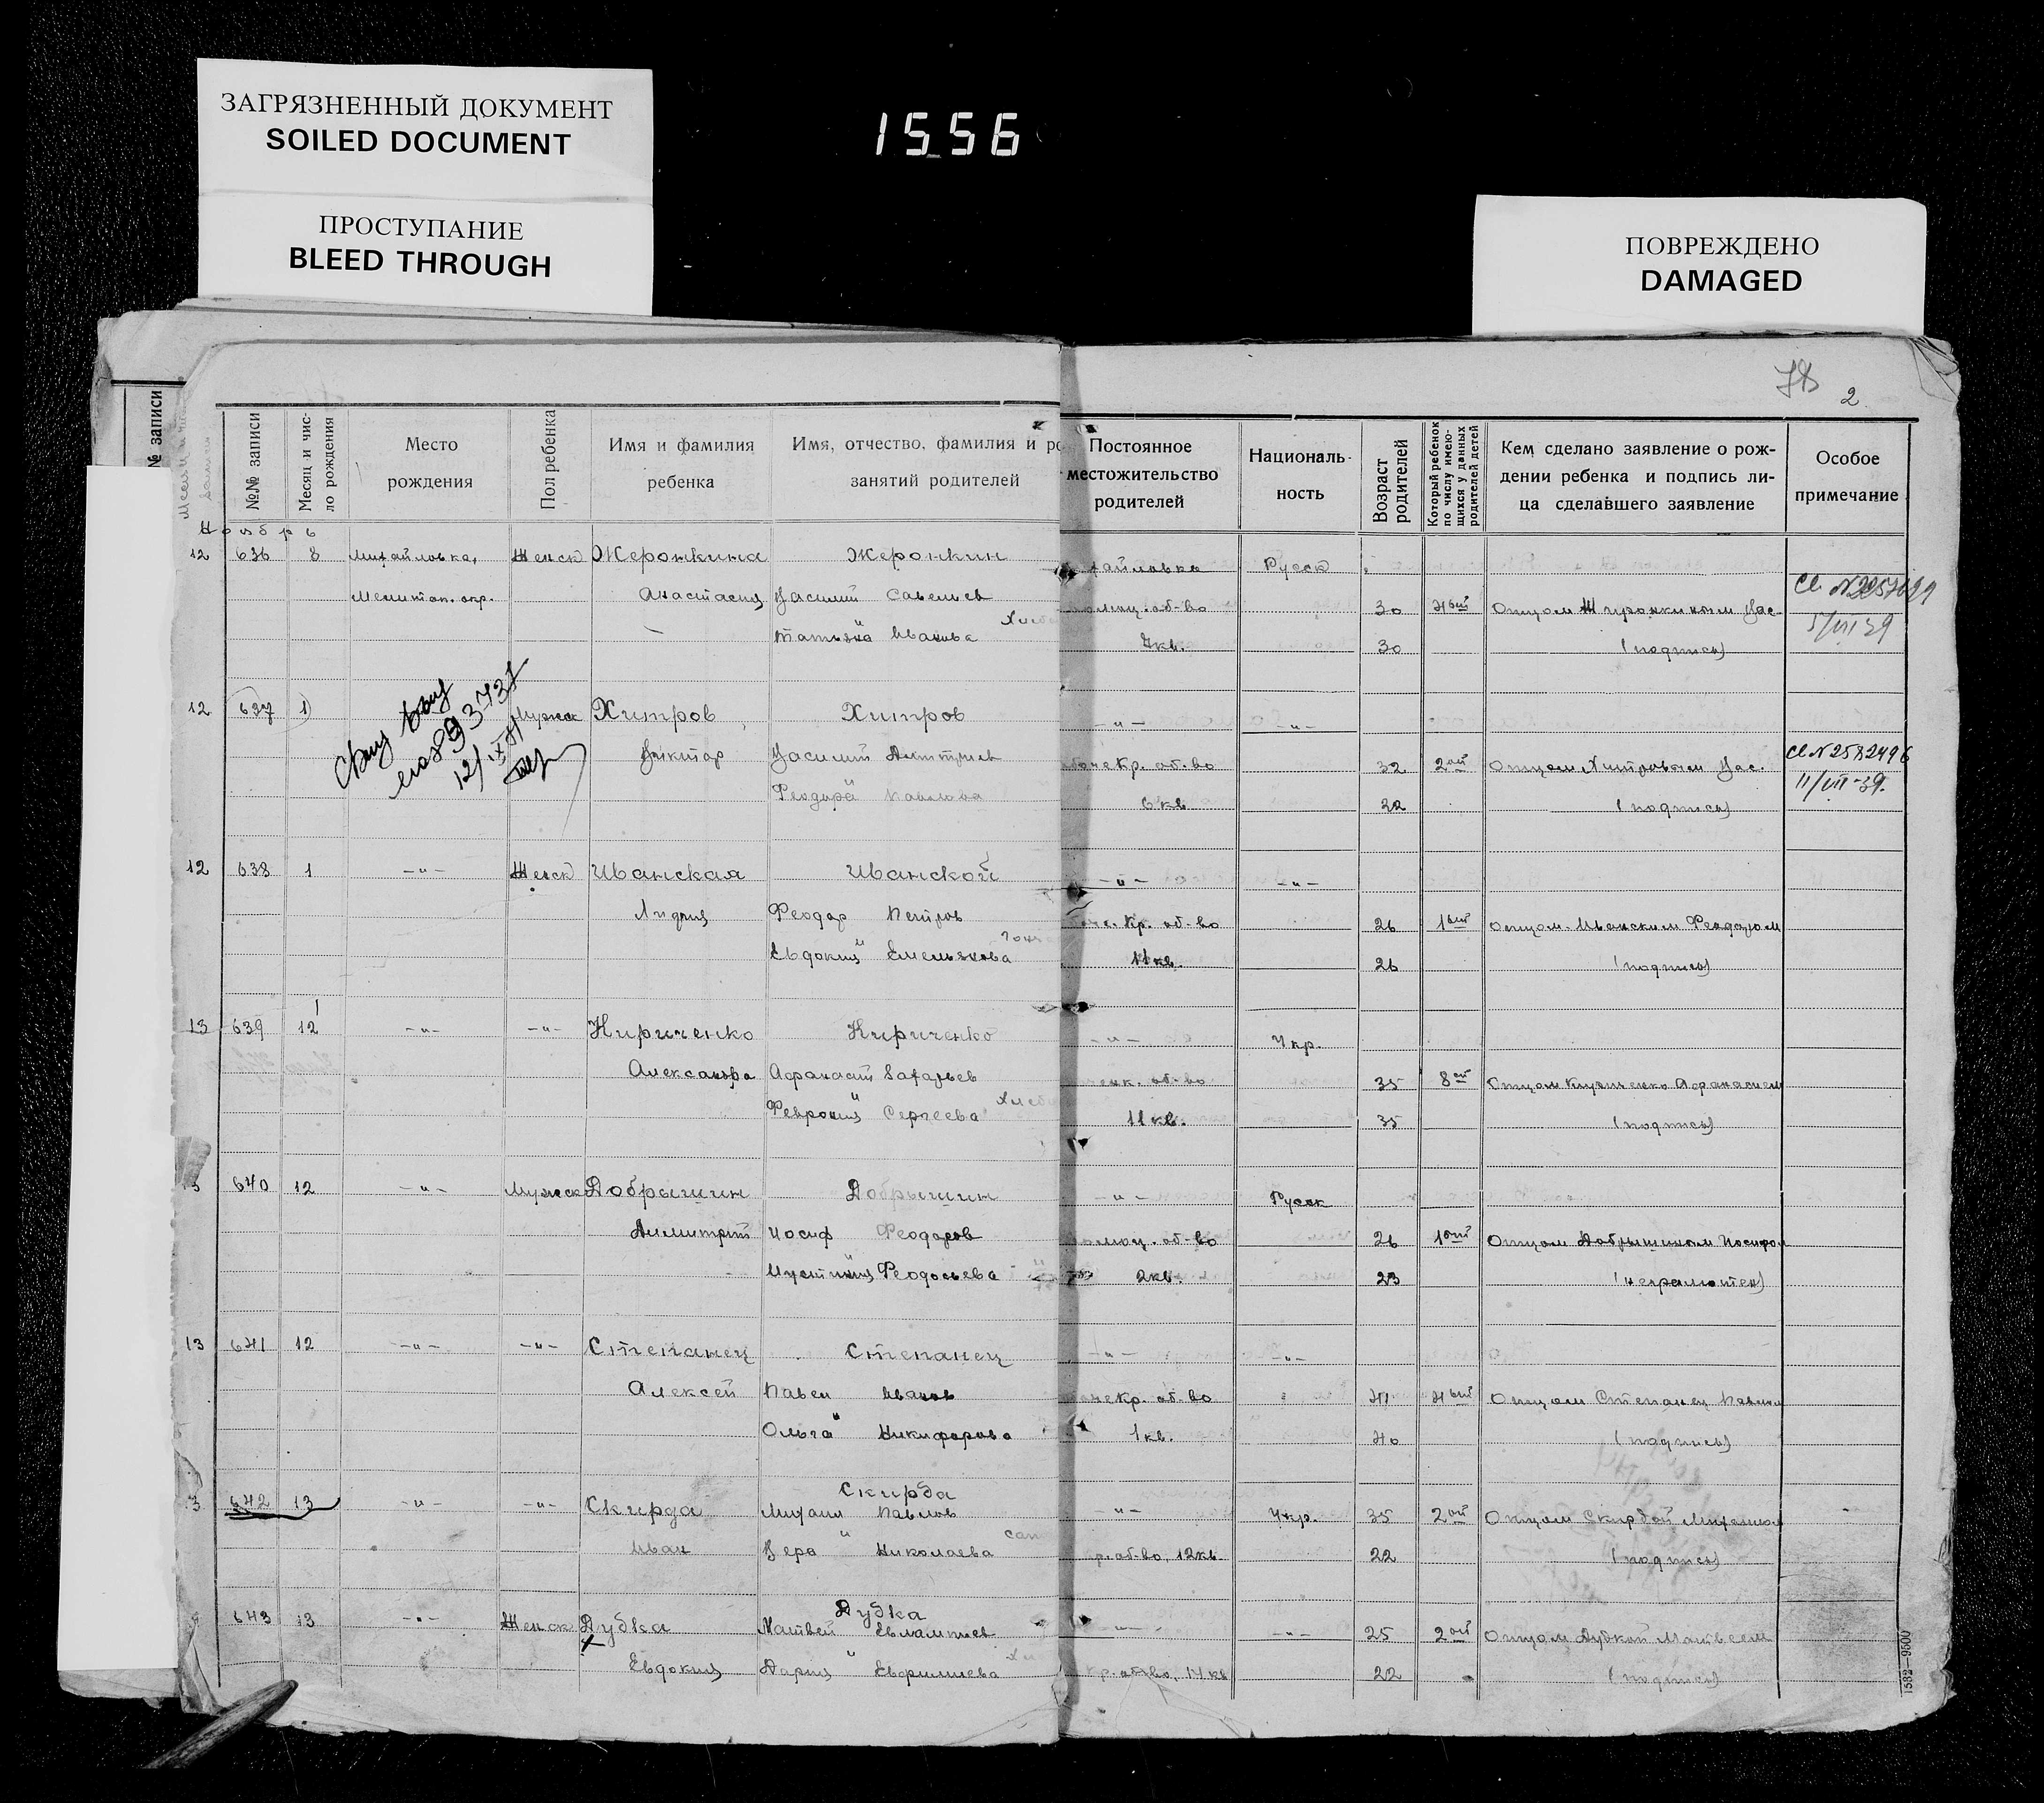 ЗАГРЯЗНЕННЫЙ ДОКУМЕНТ
SOILED DOCUMENT
ПРОСТУПАНИЕ
BLEED THROUGH
1556
ПОВРЕЖДЕНО
DAMAGED
2
№ записи
№№ записи
Месяц и чис-
ло рождения
Место
рождения
Пол ребенка
Имя и фамилия
ребенка
Имя, отчество, фамилия и ро
занятий родителей
Постоянное
местожительство
родителей
Националь-
ность
Возраст
родителей
Который ребенок
по числу имею-
щихся у данных
родителей детей
Кем сделано заявление о рож-
дении ребенка и подпись ли-
ца сделавшего заявление
Особое
примечание
Ноябрь
12 636 8 Михайловка, Женск Жеронкина Жеронкин Русск
Мелитоп. окр. Анастасия Василий Савельев 30 4ый Отцом Жиронкиным Вас.
Татьяна Иванова 4кв. 30 (подпись)
5/VII 39
12 637 1 Мужск Хитров Хитров -"- -"-
Виктор Василий Дмитриев об-во 32 2ой Отцом Хитровым Вас. Св N2582496
Феодора Павлова 6кв 32 (подпись) 11/VII-39.
12/IX
12 638 1 -"- Женск Иванская Иванской -"- -"-
Лидия Феодор Петров Кр. об-во 26 1ый Отцом Иванским Феодором
Евдокия " Емельянова 11кв. 26 (подпись)
13 639 12 -"- -"- Кириченко Кириченко -"- Укр.
Александра Афанасий Захарьев об-во 35 8ой Отцом Кириченко Афанасием
Феврония " Сергеева 11кв. 35 (подпись)
640 12 -"- Мужск Добрышин Добрышин -"- Русск
Димитрий Иосиф Феодоров об-во 26 1ый Отцом Добрышиным Иосифом
Иустиния " Феодосьева 2кв. 23 (неграмотен)
13 641 12 -"- -"- Степанец Степанец -"- -"-
Алексей Павел Иванов Кр. об-во 41 4ый Отцом Степанец Павлом
Ольга " Никифорова 1кв. 40 (подпись)
Скирда
3 642 13 -"- -"- Скирда Михаил Павлов -"- Укр. 35 2ой Отцом Скирдой Михаилом
Иван Вера " Николаева р. об-во, 12кв 22 (подпись)
Дубка
643 13 -"- Женск Дубка Матвей Евлампиев -"- -"- 25 2ой Отцом Дубкой Матвеем
Евдокия Дария " Ефримиева Кр. об-во, 14кв 22 (подпись)
1582—9500